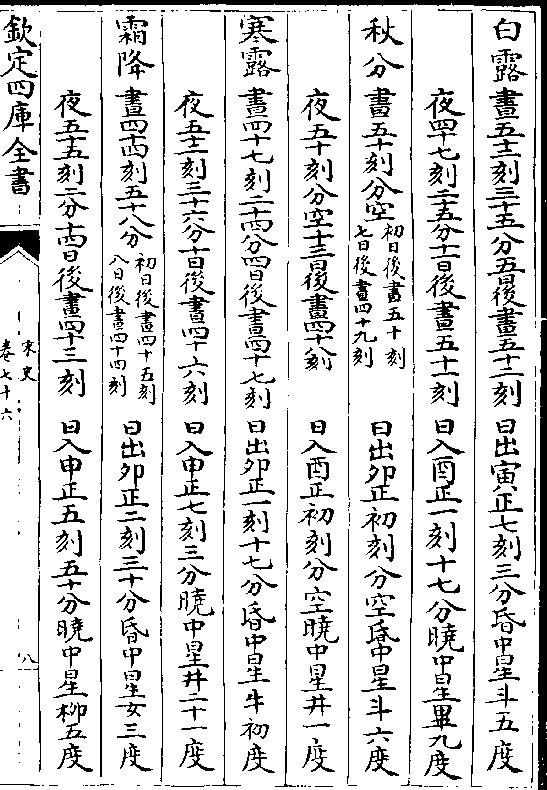 白露晝五十二刻三十五分五日後晝五十二刻　日出寅正七刻三分昏中星斗五度
夜四十七刻二十五分十一日後晝五十一刻　日入酉正一刻十七分曉中星畢九度
秋分晝五十刻分空初日後晝五十刻七日後晝四十九刻　日出卯正初刻分空昏中星斗六度
夜五十刻分空十三日後晝四十八刻　日入酉正初刻分空曉中星井一度
寒露晝四十七刻二十四分四日後晝四十七刻　日出卯正一刻十七分昏中星牛初度
夜五十二刻三十六分十日後晝四十六刻　日入申正七刻三分曉中星井二十一度
霜降晝四十四刻五十八分初日後晝四十五刻八日後晝四十四刻　日出卯正二刻三十分昏中星女三度
夜五十五刻二分十四日後晝四十三刻　日入申正五刻五十分曉中星柳五度
欽定四庫全書
宋史
卷七十六
八